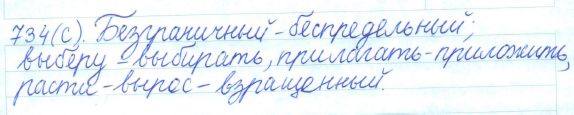 734(с). Безграничный - беспредельный;
выберу - выбирать, прилагать - приложить,
расти - вырос - взращенный.